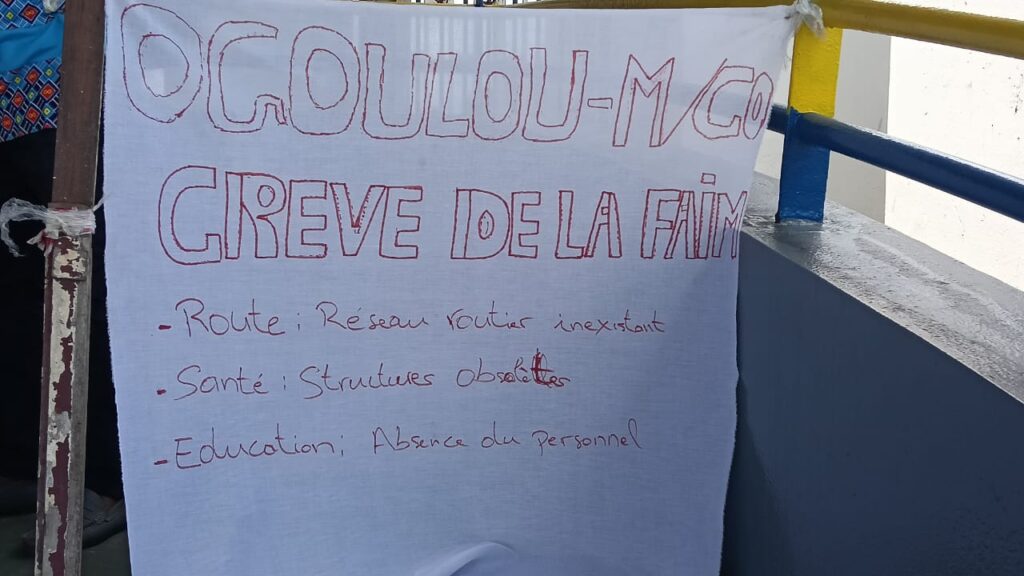 OGOULOU-M/GO
GREVE DE LA FAIM
- Route : Réseau routier inexistant
- Santé : Structures obsolètes
- Education ; Absence du personnel